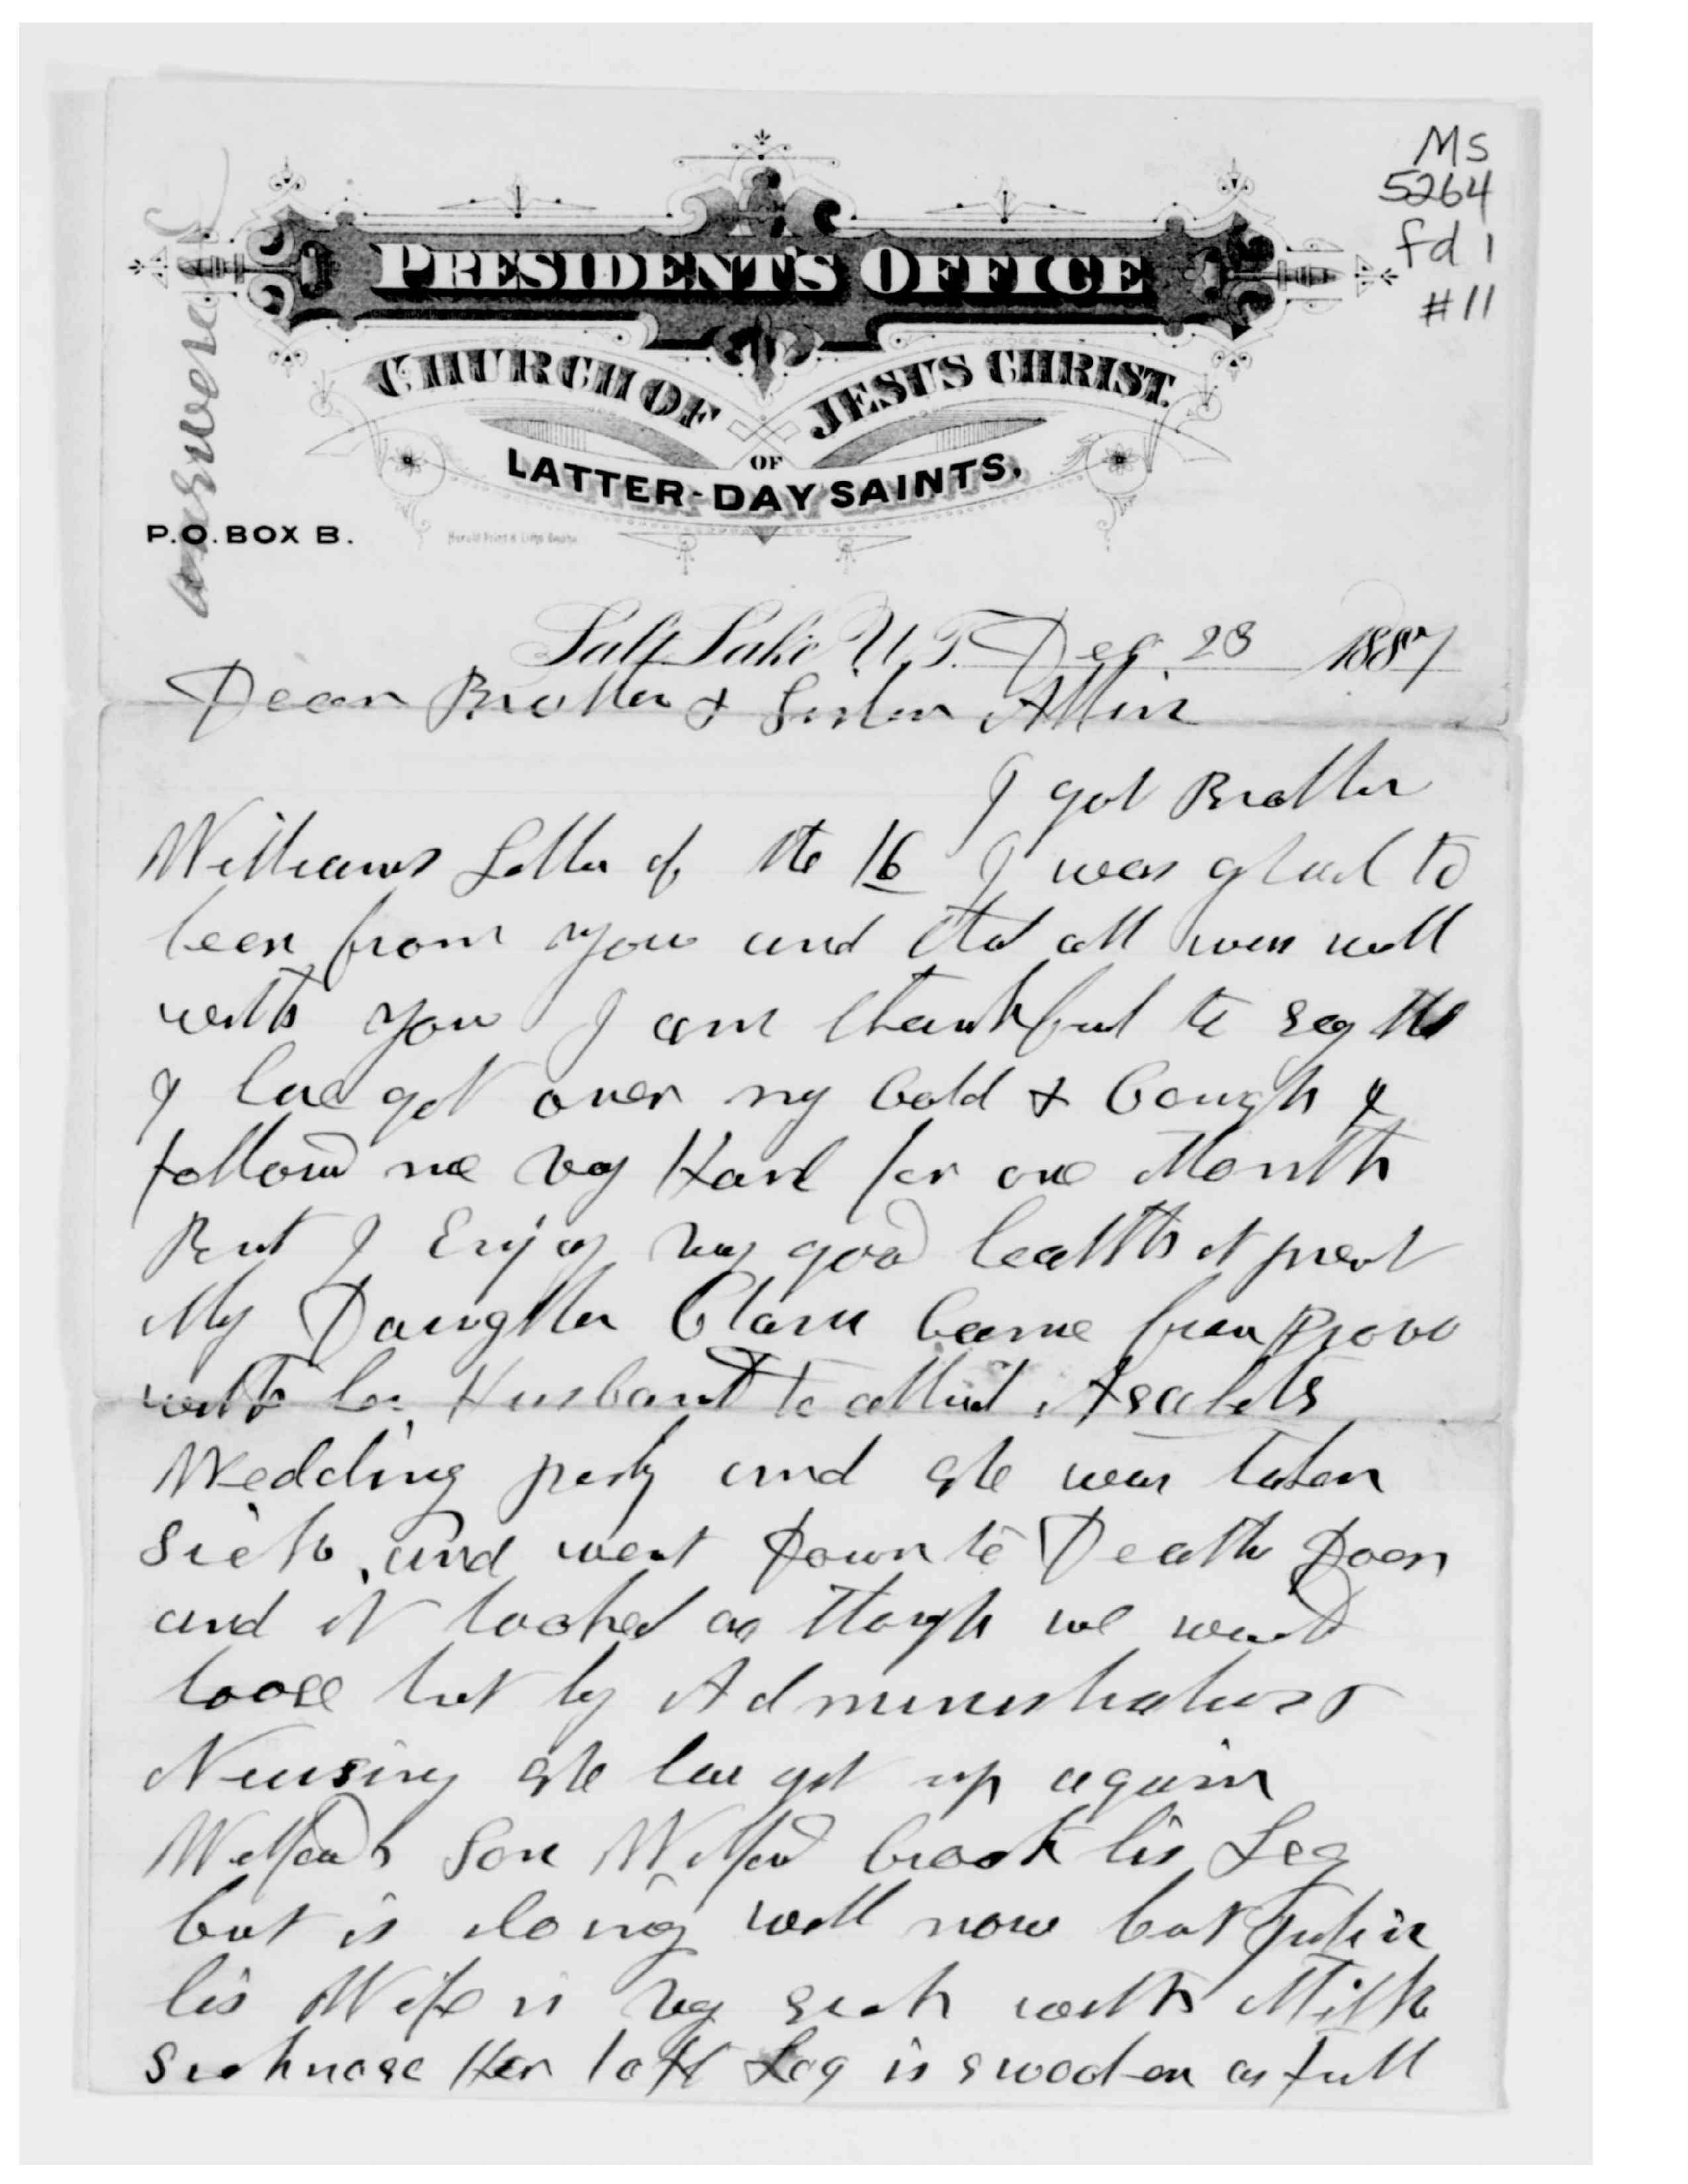 Ms
5264
fd 1
#11
answered
PRESIDENT'S OFFICE
CHURCH OF JESUS CHRIST
OF
LATTER-DAY SAINTS.
P.O. BOX B.
Salt Lake, U.T. Dec 28 1887
Dear Brother & Sister Atkin
I got Brother
Williams Letter of the 16 I was glad to
hear from you and that all was well
with you I am thankful to say that
I have got over my Cold & Cough
followed me vey Hard for one Month
But I Enjoy vey good health at
My Daughter Clara came from Provo
with her Husband to attend Asahels
Wedding party and she was taken
sick and went down to Death Door
and it looked as though we would
loose her by Administration &
Nursing she has got up again
Wilfords Son Wilford broak his Leg
but is doing well now but Julia
his Wife is vey sick with Milk
sickness Her left Leg is swoolen as full